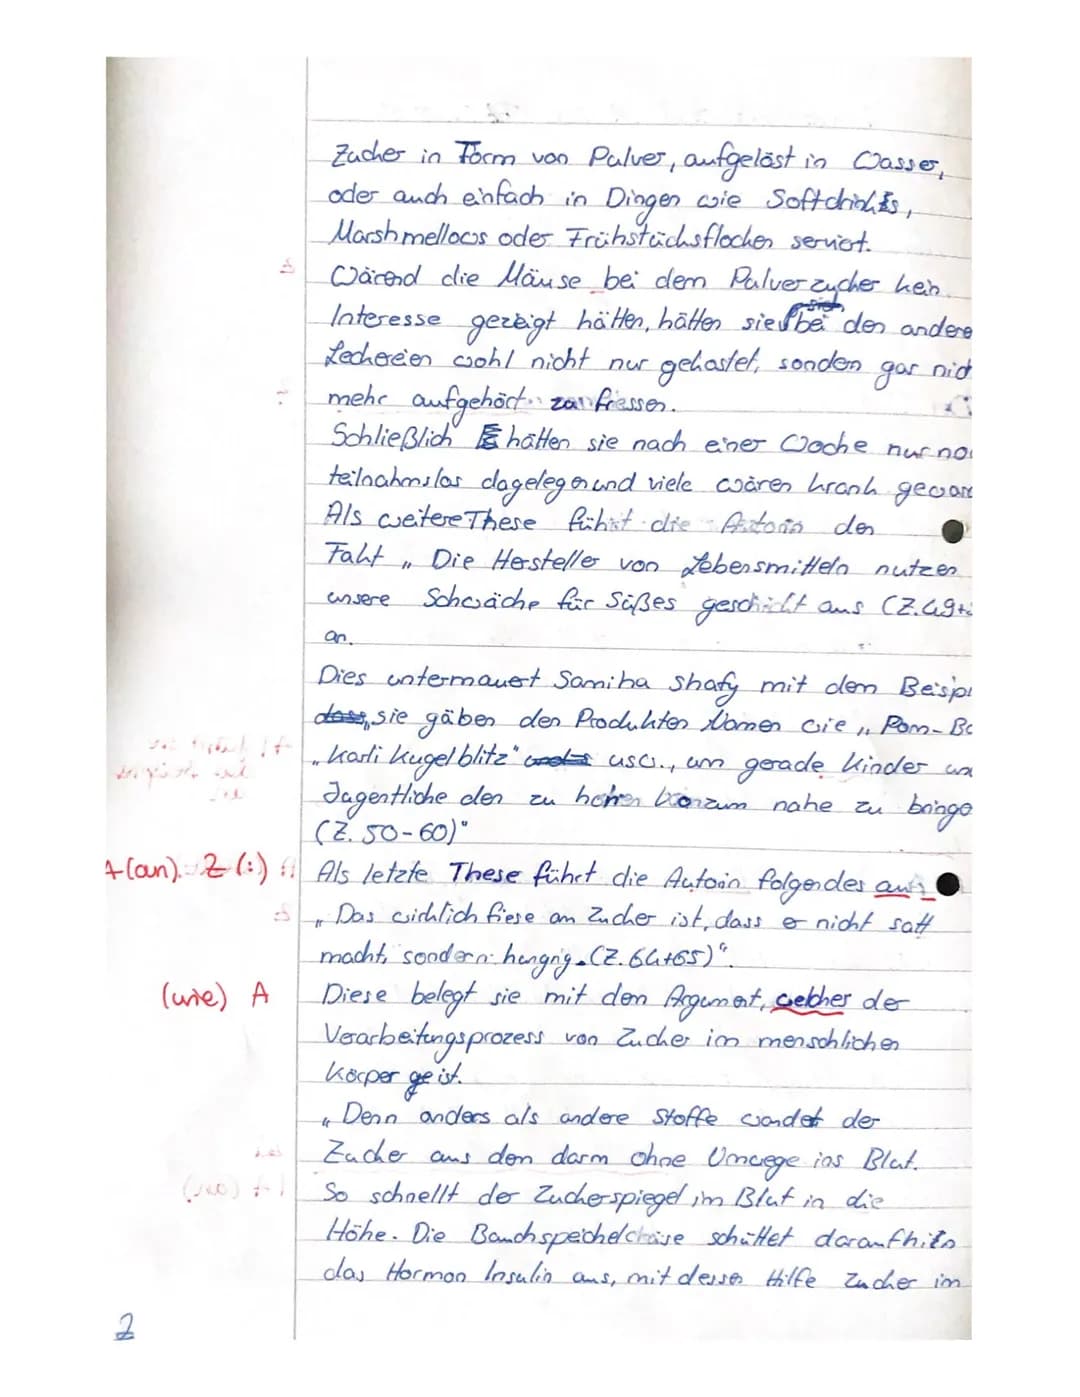 Zucker in Form von Pulver, aufgelöst in Wasser,
oder auch einfach in Dingen wie Softdrinks,
Marshmellows oder Frühstücksflocken serviert.
Wärend die Mäuse bei dem Pulverzucker kein
Interesse gezeigt hätten, hätten sie bei den andere
Leckereien wohl nicht nur gekostet, sondern gar nich
mehr aufgehört zu fressen.
Schließlich hätten sie nach einer Woche nur no
teilnahmslos dagelegen und viele wären krank gewor
Als weitere These führt die Autorin den
Fakt „Die Hersteller von Lebensmitteln nutzen
unsere Schwäche für Süßes geschickt aus (Z.49+
an.
Dies untermauert Samiha Shafy mit dem Beispi
dass, sie gäben den Produkten Namen wie „Pom-Bä
„Karli Kugelblitz" usw., um gerade Kinder un
Jugentliche den zu hohen Konzum nahe zu bringe
(Z. 50-60)"
A (an). Z (:) Als letzte These führt die Autorin folgendes auf
„Das wirklich fiese am Zucker ist, dass er nicht satt
macht, sondern hungrig. (Z. 64+65)".
(wie) A Diese belegt sie mit dem Argument, welcher der
Verarbeitungsprozess von Zucker im menschlichen
Körper ist.
„Denn anders als andere Stoffe wandet der
Zucker aus den darm ohne Umwege ins Blut.
So schnellt der Zuckerspiegel im Blut in die
Höhe. Die Bauchspeicheldrüse schüttet daraufhin
das Hormon Insulin aus, mit dessen Hilfe Zucker im
2